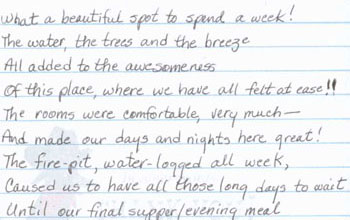 What a beautiful spot to spend a week!
The water, the trees and the breeze
All added to the awesomeness
Of this place, where we have all felt at ease!!
The rooms were comfortable, very much—
And made our days and nights here great!
The fire-pit, water-logged all week,
Caused us to have all those long days to wait
Until our final supper/evening meal